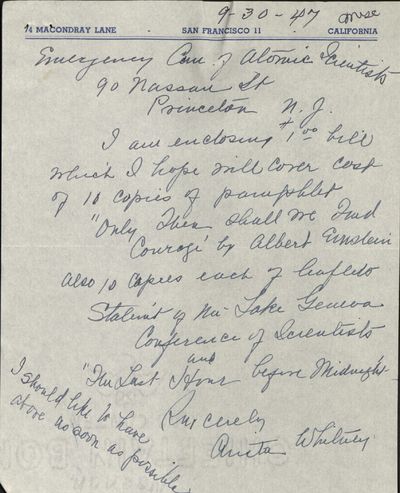 9-30-47 misc
14 MACONDRAY LANE SAN FRANCISCO 11 CALIFORNIA
Emergency Com. of Atomic Scientists
90 Nassau St
Princeton N. J.
I am enclosing $1.00 bill
which I hope will cover cost
of 10 copies of pamphlet
"Only Then Shall We Find
Courage" by Albert Einstein
also 10 copies each of leaflets
Statem't of The Lake Geneva
Conference of Scientists
and
"The Last Hour before Midnight"
Sincerely
Anita Whitney
I should like to have
above as soon as possible